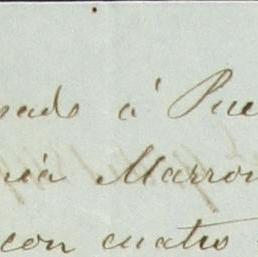 sado á Pue
nia Marron
con cuatro